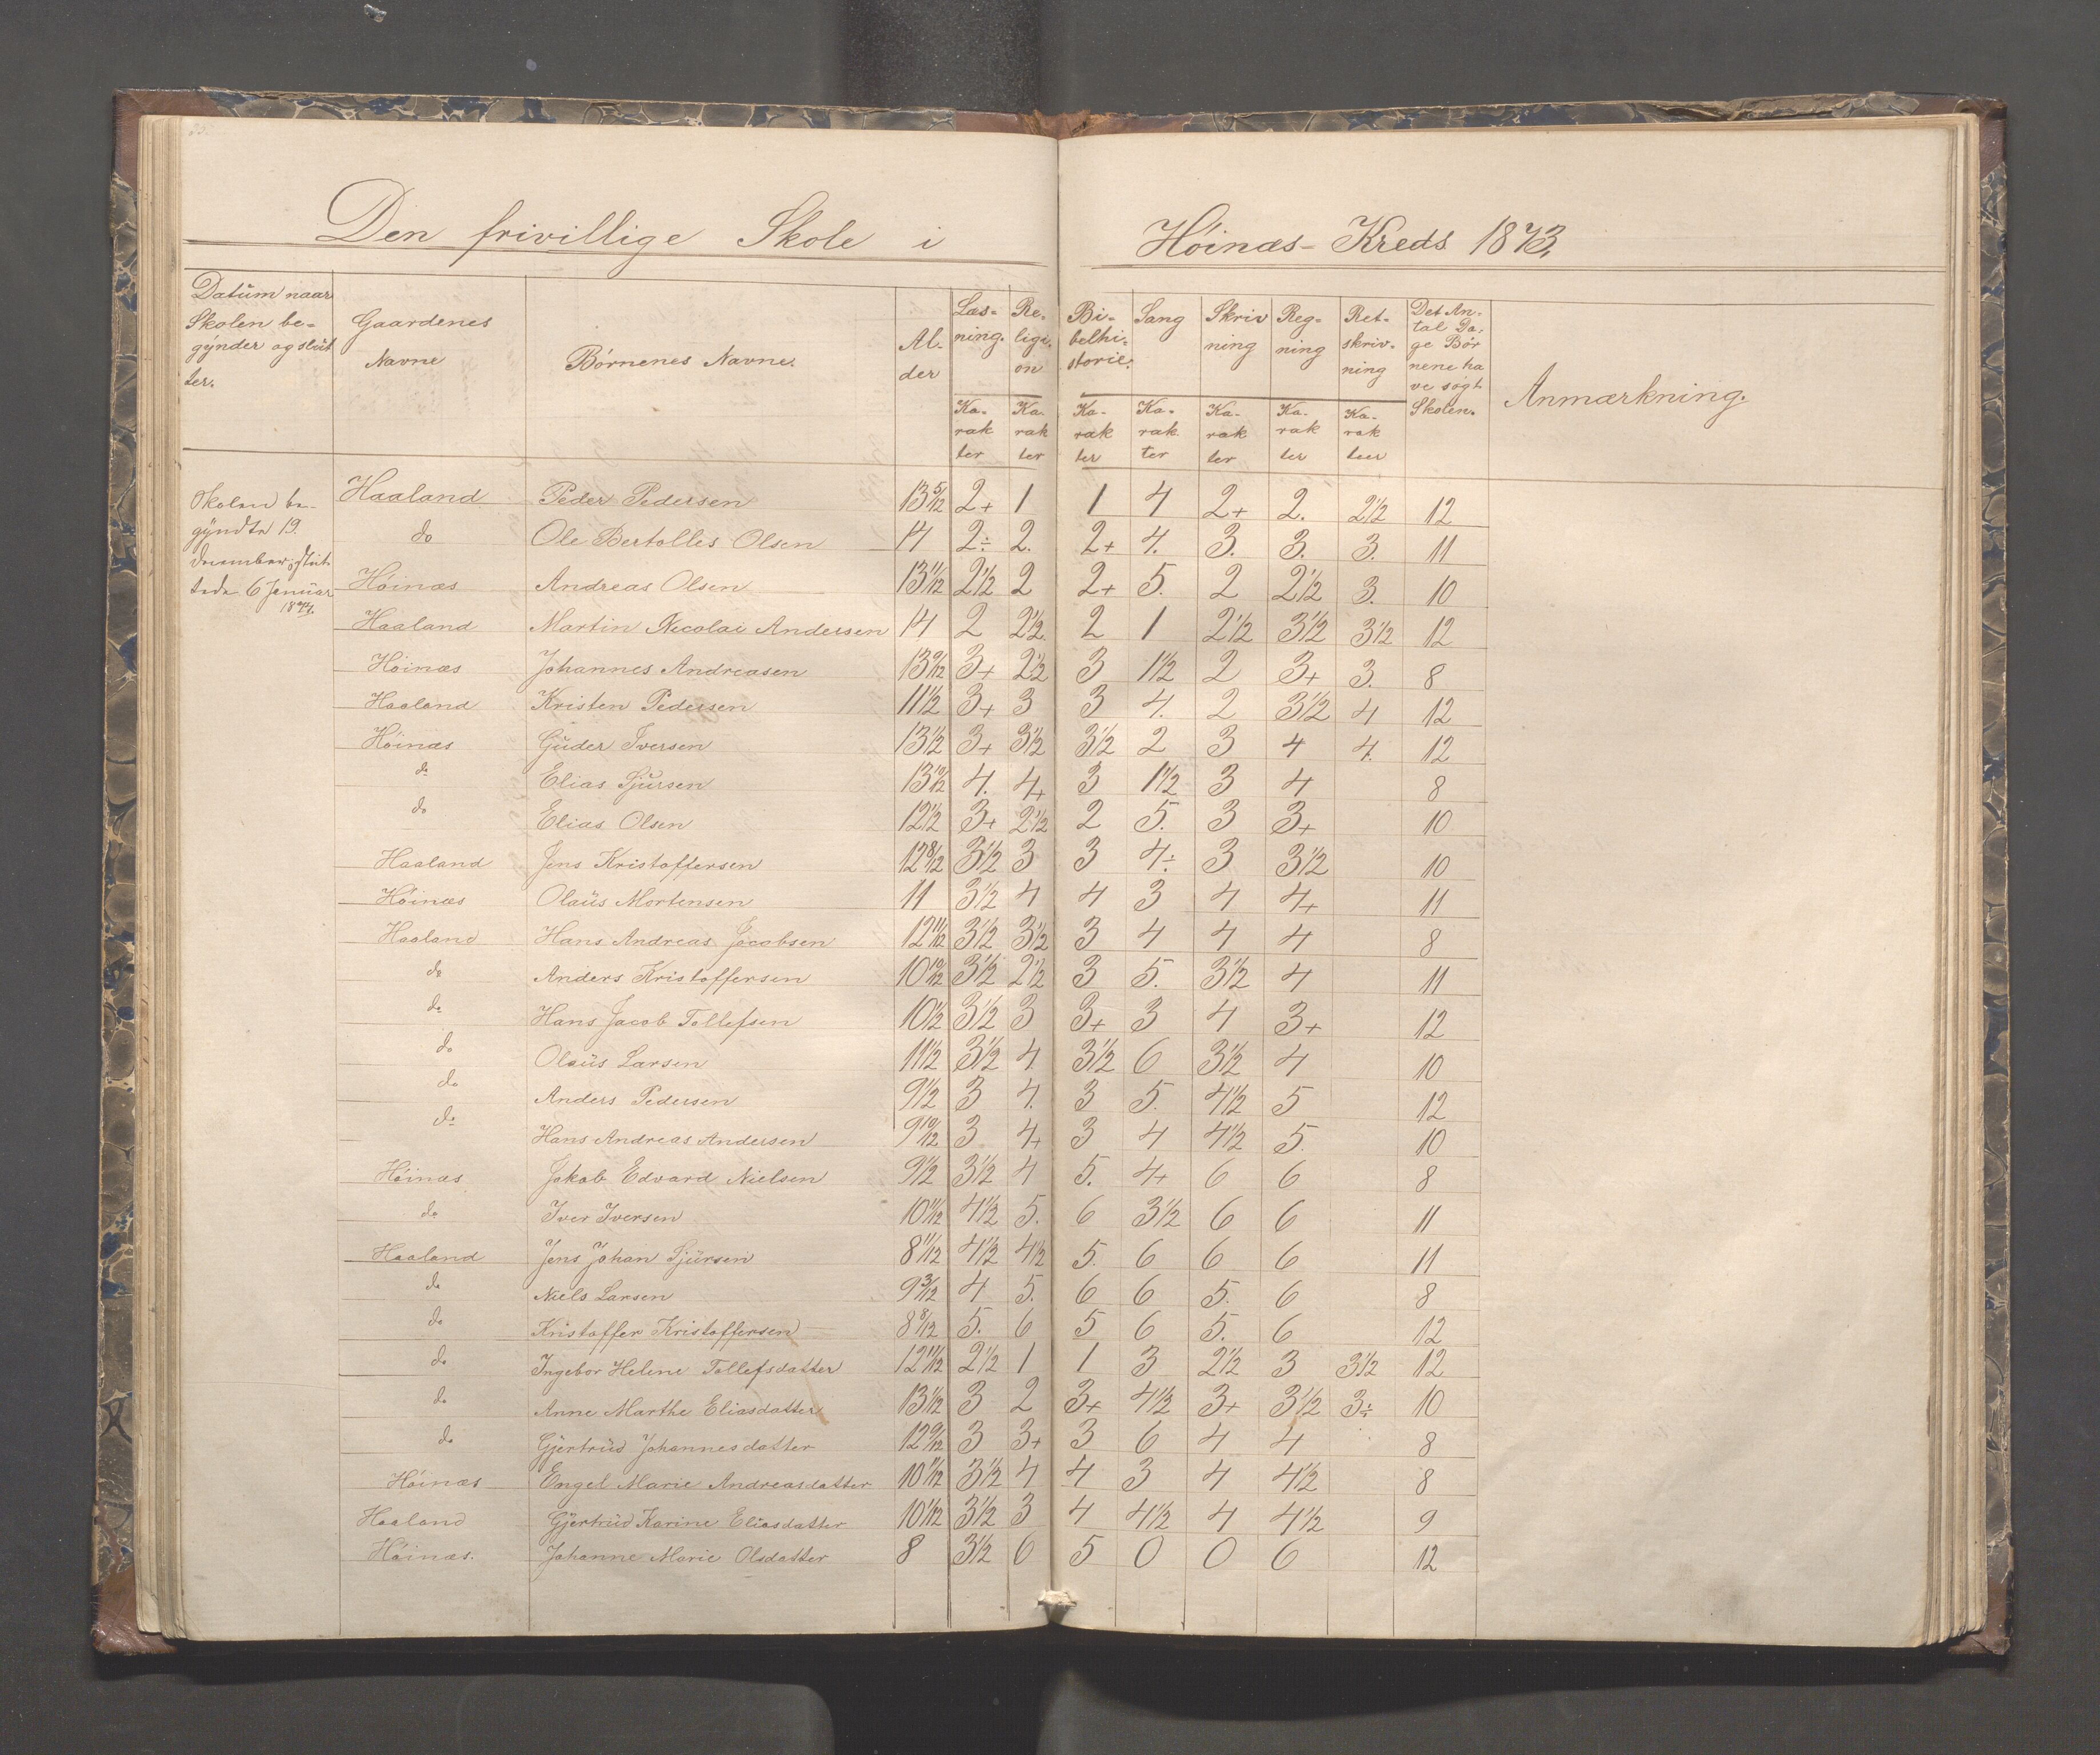 Den frivillige Skole i Höinæs-Kreds 1873.
Datum naar Skolen begynder og slutter. | Gaardenes Navne | Börnenes Navne. | Alder | Læsning. Karakter | Religion Karakter | Bibelhistorie. Karakter | Sang Karakter | Skrivning Karakter | Regning Karakter | Retskrivning Karakteer | Det Antal Dage Börnene have sögt Skolen. | Anmærkning.
Skolen begyndte 19. December, sluttede 6 Januar 1874.
Haaland | Peder Pedersen | 13 5/12 | 2+ | 1 | 1 | 4 | 2+ | 2. | 2 1/2 | 12
do | Ole Bertolles Olsen | 14 | 2÷ | 2. | 2+ | 4. | 3. | 3. | 3. | 11
Höinæs | Andreas Olsen | 13 11/12 | 2 1/2 | 2 | 2+ | 5. | 2 | 2 1/2 | 3. | 10
Haaland | Martin Nicolai Andersen | 14 | 2 | 2 1/2 | 2 | 1 | 2 1/2 | 3 1/2 | 3 1/2 | 12
Höinæs | Johannes Andreasen | 13 9/12 | 3+ | 2 1/2 | 3 | 1 1/2 | 2 | 3+ | 3. | 8
Haaland | Kristen Pedersen | 11 1/2 | 3+ | 3 | 3 | 4. | 2 | 3 1/2 | 4 | 12
Höinæs | Guder Iversen | 13 1/2 | 3+ | 3 1/2 | 3 1/2 | 2 | 3 | 4 | 4. | 12
do | Elias Sjursen | 13 10/12 | 4. | 4+ | 3 | 1 1/2 | 3 | 4 | 8
do | Elias Olsen | 12 1/2 | 3+ | 2 1/2 | 2 | 5. | 3 | 3+ | 10
Haaland | Jens Kristoffersen | 12 8/12 | 3 1/2 | 3 | 3 | 4÷ | 3 | 3 1/2 | 10
Höinæs | Olaus Mortensen | 11 | 3 1/2 | 4 | 4 | 3 | 4 | 4+ | 11
Haaland | Hans Andreas Jacobsen | 12 11/12 | 3 1/2 | 3 1/2 | 3 | 4 | 4 | 4 | 8
do | Anders Kristoffersen | 10 10/12 | 3 1/2 | 2 1/2 | 3 | 5. | 3 1/2 | 4 | 11
do | Hans Jacob Tollefsen | 10 1/2 | 3 1/2 | 3 | 3+ | 3 | 4 | 3+ | 12
do | Olaus Larsen | 11 1/2 | 3 1/2 | 4 | 3 1/2 | 6 | 3 1/2 | 4 | 10
do | Anders Pedersen | 9 1/2 | 3 | 4. | 3 | 5. | 4 1/2 | 5 | 12
do | Hans Andreas Andersen | 9 10/12 | 3 | 4+ | 3 | 4 | 4 1/2 | 5. | 10
Höinæs | Jakob Edvard Nielsen | 9 1/2 | 3 1/2 | 4 | 5. | 4+ | 6 | 6 | 8
do | Iver Iversen | 10 11/12 | 4 1/2 | 5. | 6 | 3 1/2 | 6 | 6 | 11
Haaland | Jens Johan Sjursen | 8 11/12 | 4 1/2 | 4 1/2 | 5. | 6 | 6 | 6 | 11
do | Niels Larsen | 9 3/12 | 4 | 5. | 6 | 6 | 5. | 6 | 8
do | Kristoffer Kristoffersen | 8 8/12 | 5. | 6 | 5 | 6 | 5. | 6 | 12
do | Ingebor Helene Tollefsdatter | 12 11/12 | 2 1/2 | 1 | 1 | 3 | 2 1/2 | 3 | 3 1/2 | 12
do | Anne Marthe Eliasdatter | 13 1/12 | 3 | 2 | 3+ | 4 1/2 | 3+ | 3 1/2 | 3÷ | 10
do | Gjertrud Johannesdatter | 12 9/12 | 3 | 3+ | 3 | 6 | 4 | 4 | 8
Höinæs | Engel Marie Andreasdatter | 10 11/12 | 3 1/2 | 4 | 4 | 3 | 4 | 4 1/2 | 8
Haaland | Gjertrud Karine Eliasdatter | 10 1/12 | 3 1/2 | 3 | 4 | 4 1/2 | 4 | 4 1/2 | 9
Höinæs. | Johanne Marie Olsdatter | 8 | 3 1/2 | 6 | 5 | 0 | 0 | 6 | 12